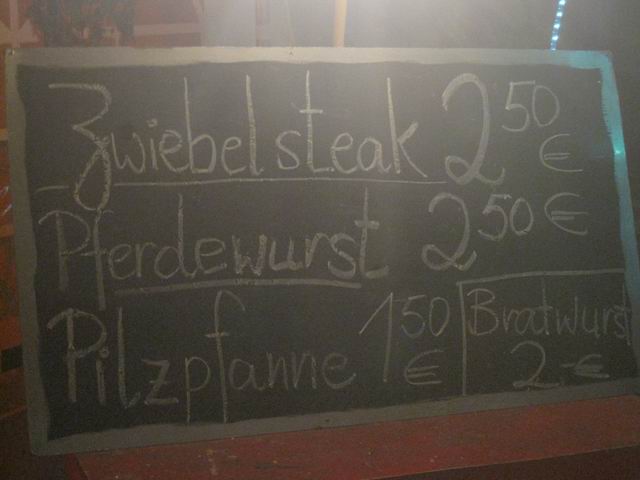 Zwiebelsteak 2 50 €
Pferdewurst 2 50 €
Pilzpfanne 1 50 €
Bratwurst
2.-€